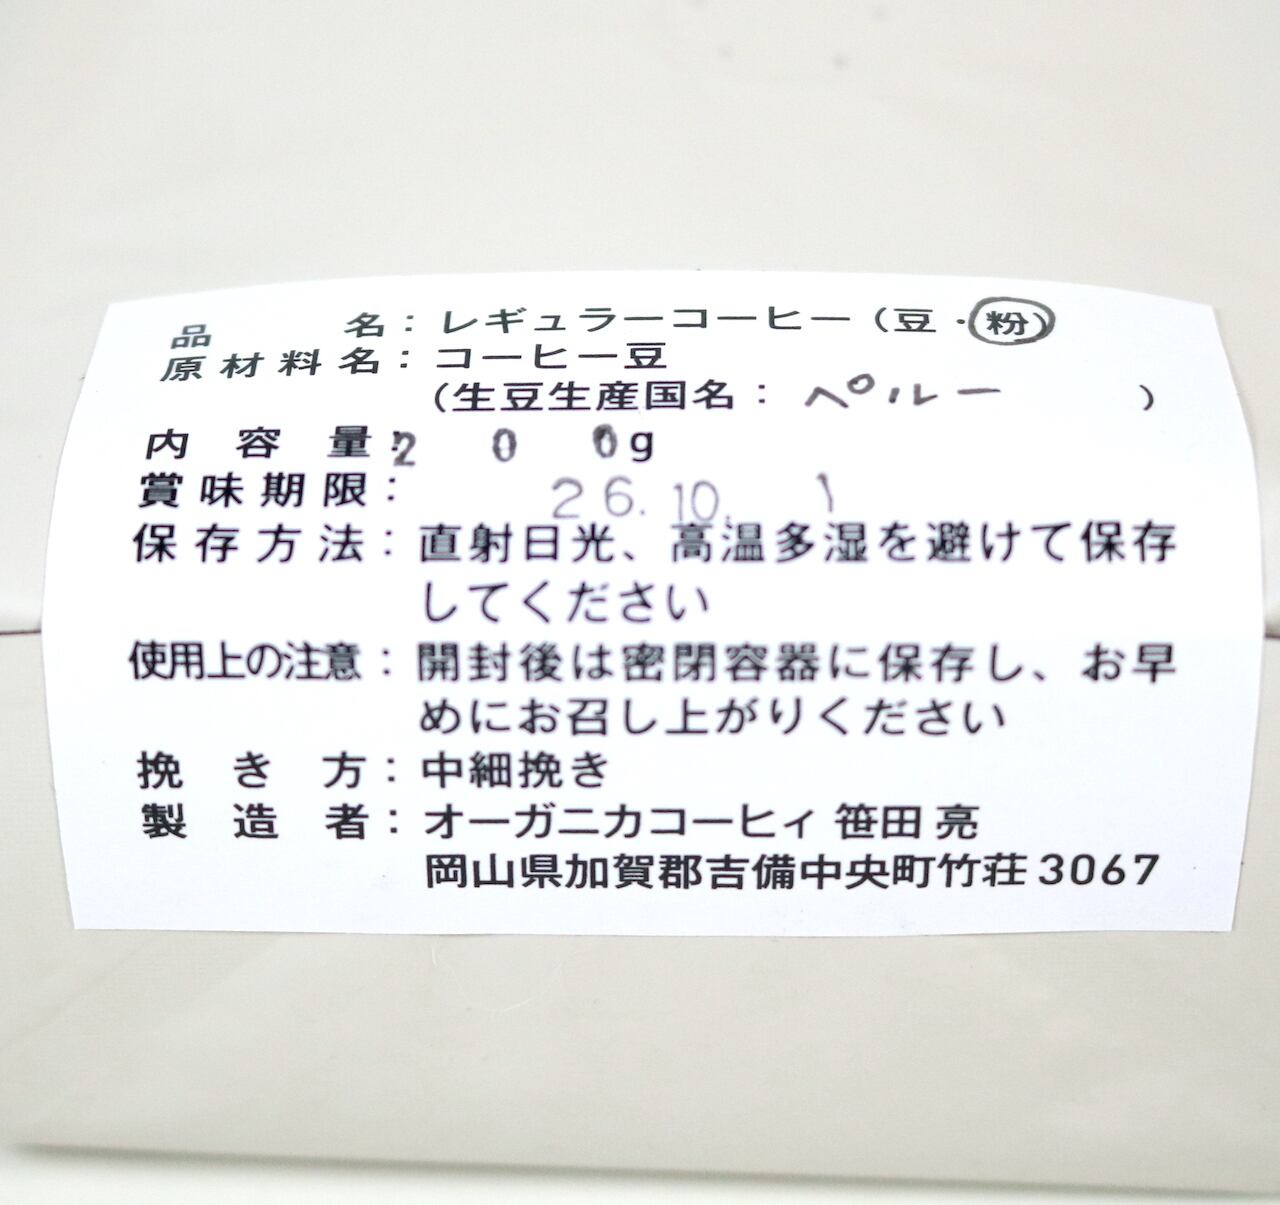 品名：レギュラーコーヒー（豆・粉）
原材料名：コーヒー豆
（生豆生産国名：ペルー）
内容量：200g
賞味期限：26.10.1
保存方法：直射日光、高温多湿を避けて保存
してください
使用上の注意：開封後は密閉容器に保存し、お早
めにお召し上がりください
挽き方：中細挽き
製造者：オーガニカコーヒィ 笹田 亮
岡山県加賀郡吉備中央町竹荘3067